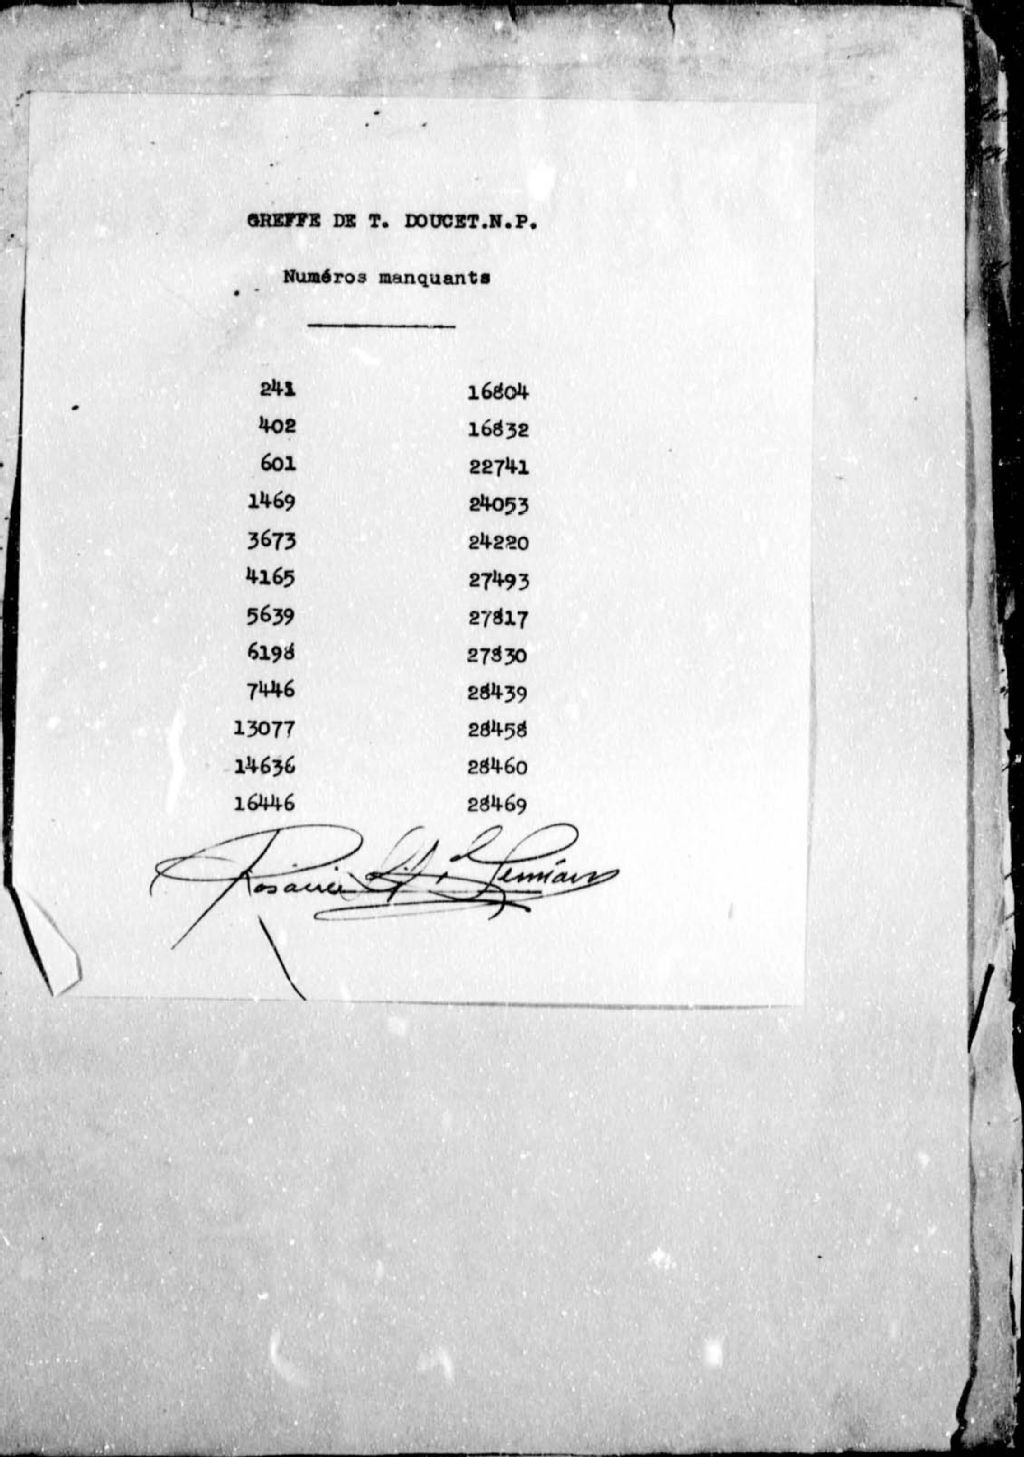 GREFFE DE T. DOUCET.N.P.
Numéros manquants
241 16804
402 16832
601 22741
1469 24053
3673 24220
4165 27493
5639 27817
6198 27830
7446 28439
13077 28458
14636 28460
16446 28469